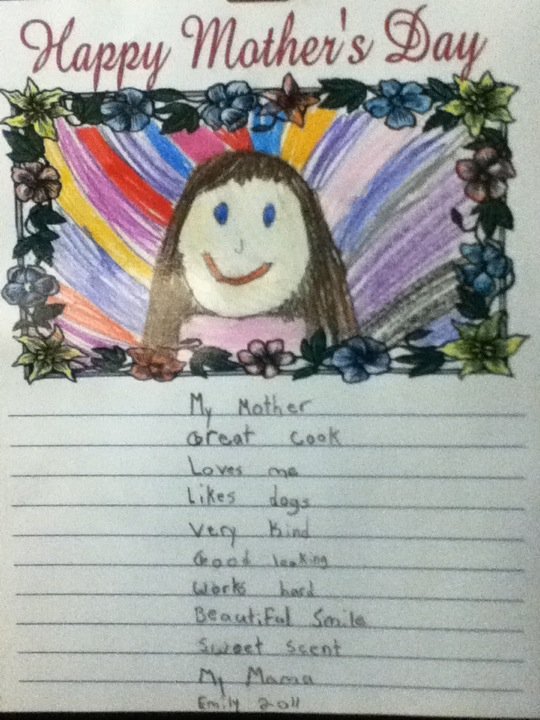 Happy Mother's Day
My Mother
Great cook
Loves me
Likes dogs
Very kind
Good looking
Works hard
Beautiful Smile
Sweet scent
My Mama
Emily 2011